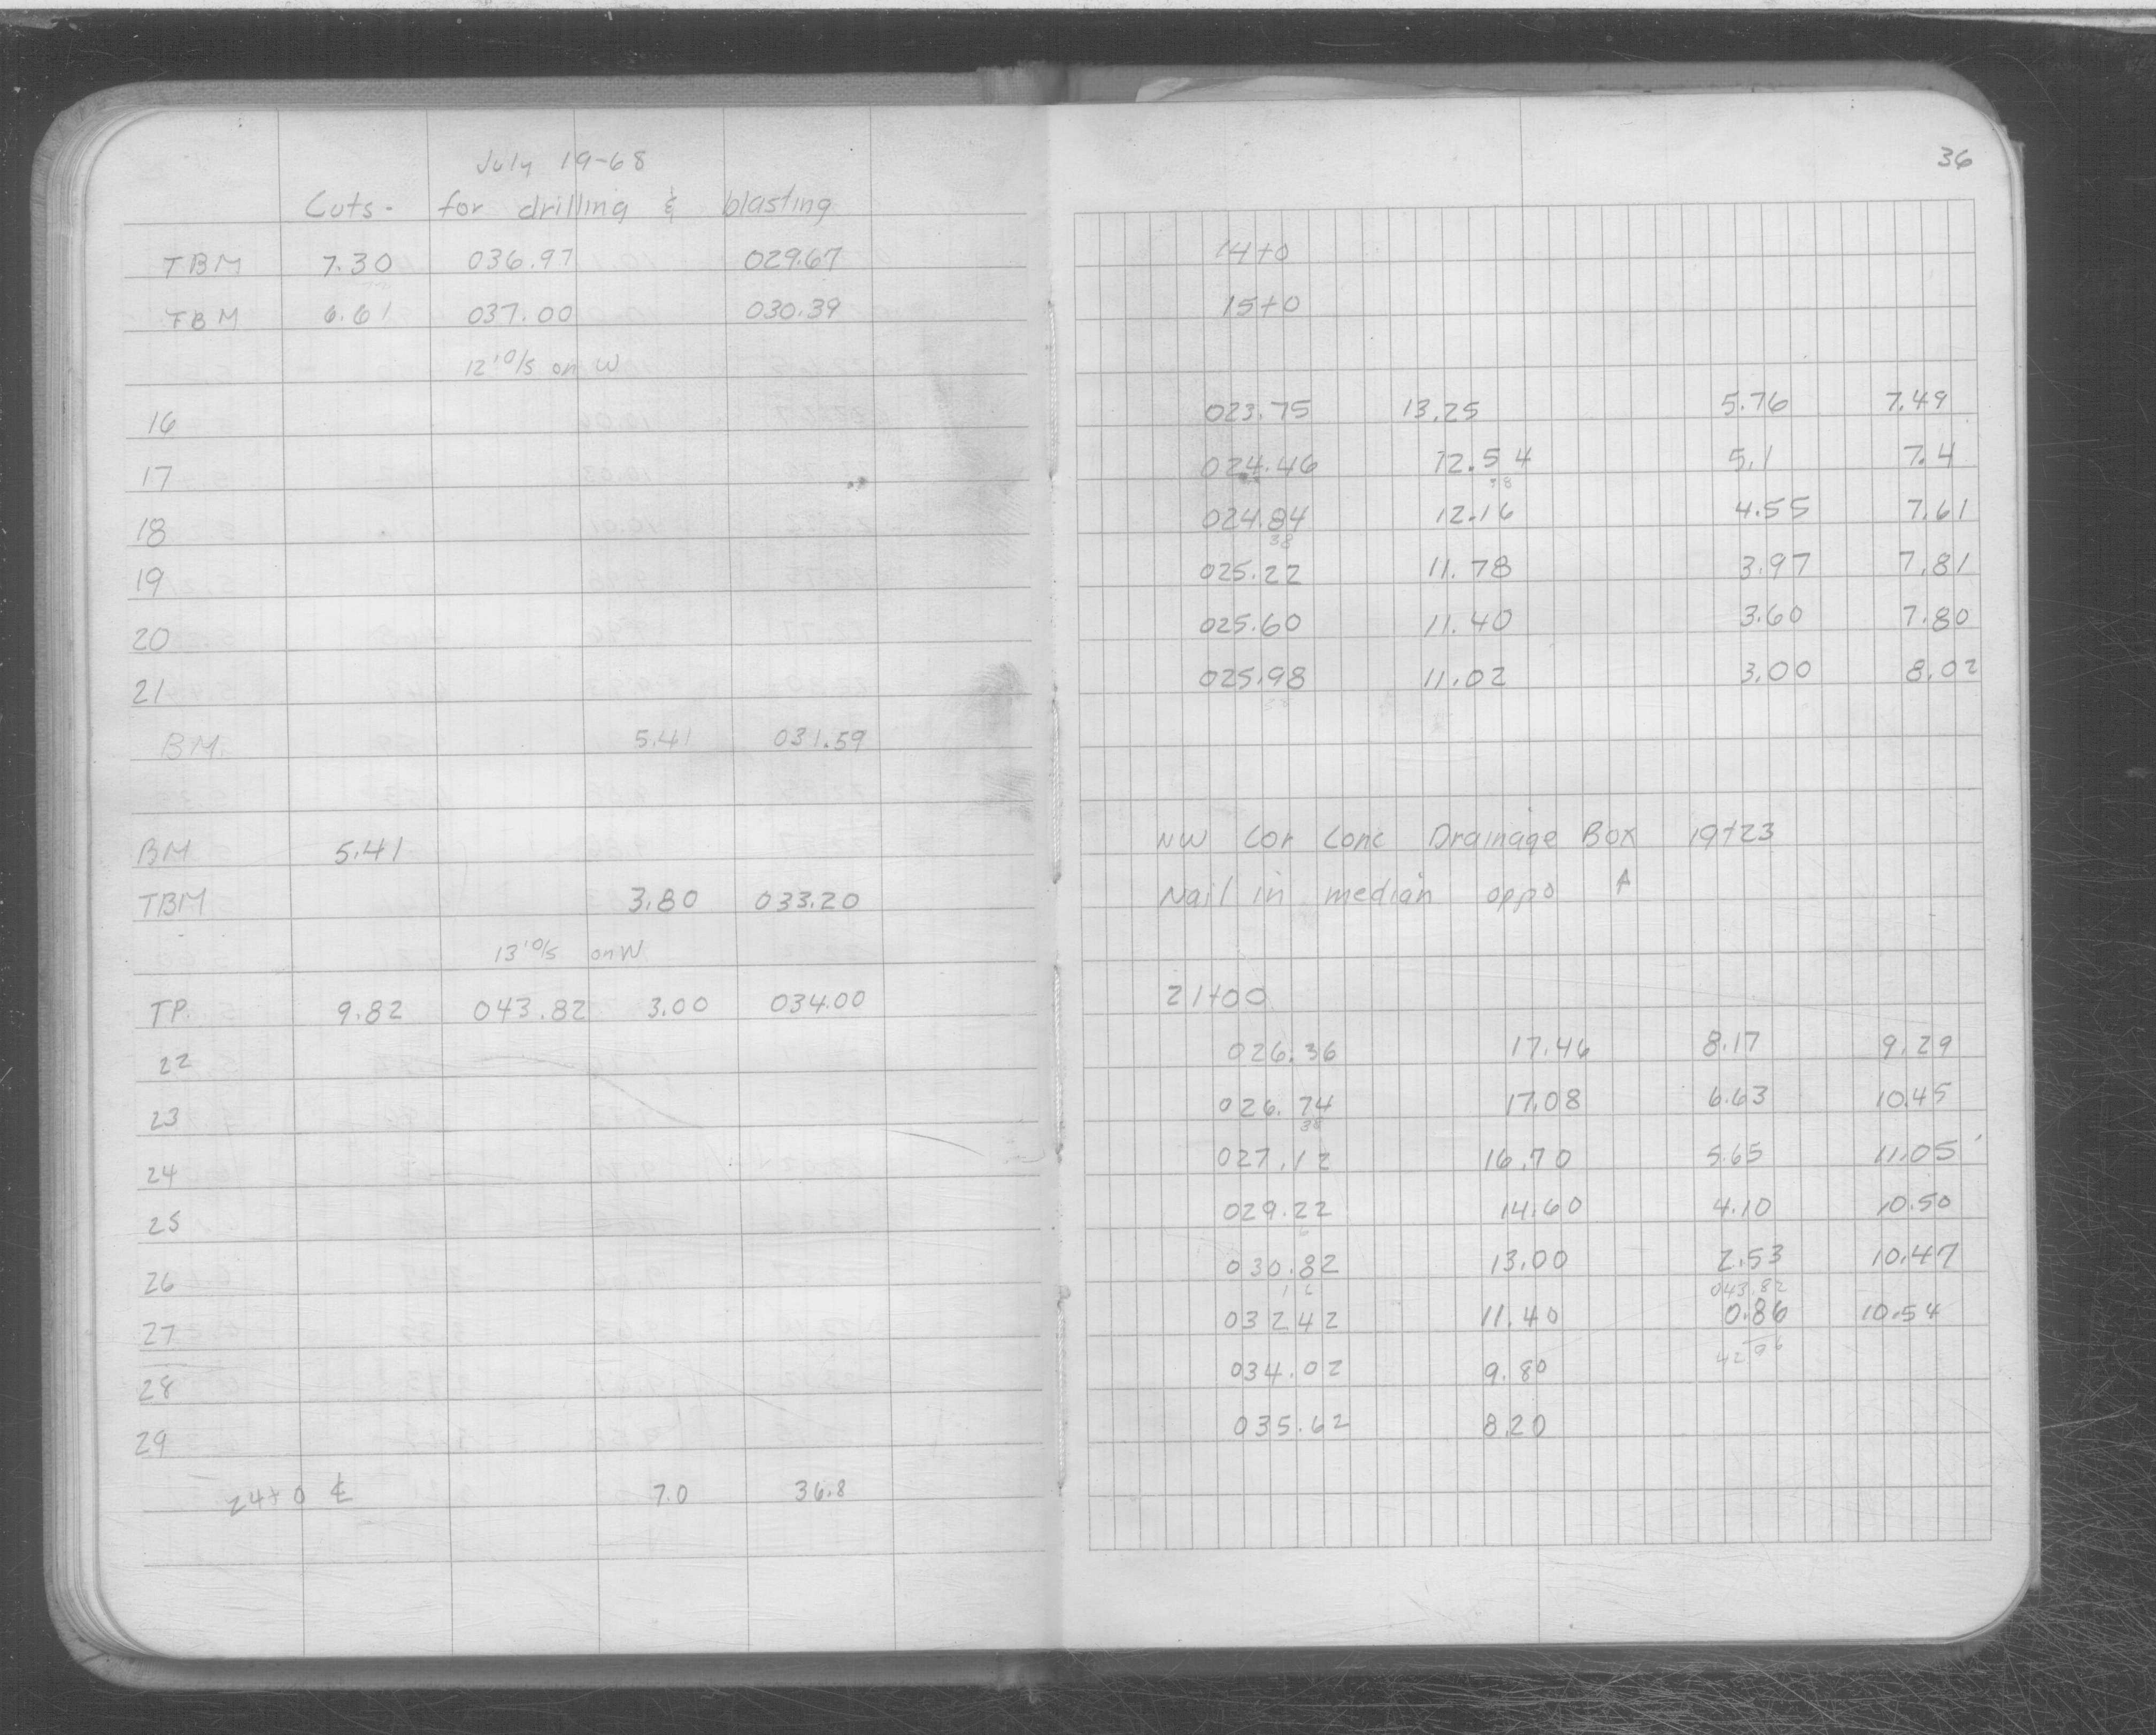 36
July 19-68
Cuts - for drilling & blasting
TBM 7.30 036.97 029.67 14+0
TBM 6.61 037.00 030.39 15+0
12' O/S on W
16 023.75 13.25 5.76 7.49
17 024.46 12.54 5.1 7.4
38
18 024.84 12.16 4.55 7.61
38
19 025.22 11.78 3.97 7.81
20 025.60 11.40 3.60 7.80
21 025.98 11.02 3.00 8.02
BM. 5.41 031.59
BM 5.41 NW Cor Conc Drainage Box 19+23
TBM 3.80 033.20 Nail in median oppo ↑
13' O/S on W
TP. 9.82 043.82 3.00 034.00 21+00
22 026.36 17.46 8.17 9.29
23 026.74 17.08 6.63 10.45
38
24 027.12 16.70 5.65 11.05
25 029.22 14.60 4.10 10.50
26 030.82 13.00 2.53 10.47
1 6 043.82
27 032 42 11.40 0.86 10.54
42 96
28 034.02 9.80
29 035.62 8.20
24+0 ℄ 7.0 36.8